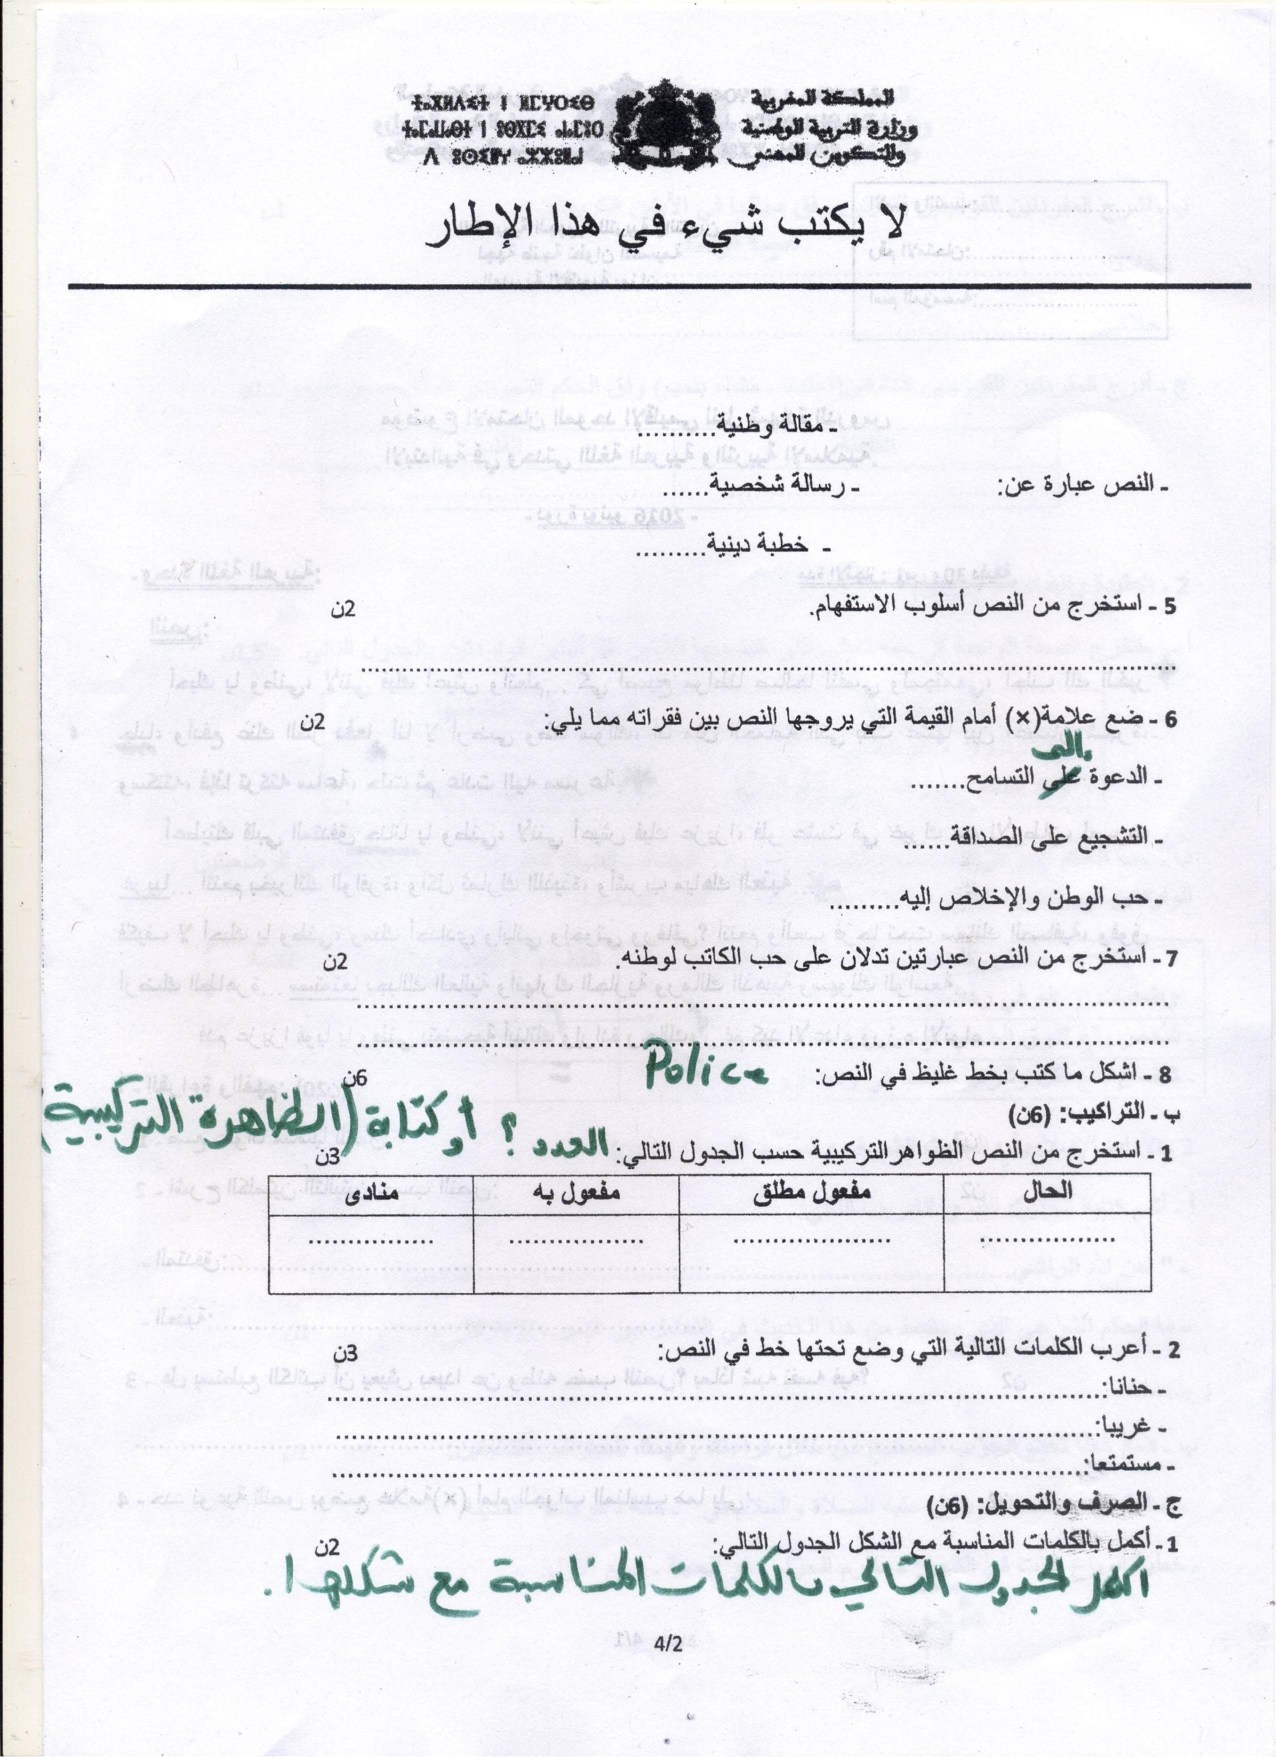 المملكة المغربية
وزارة التربية الوطنية
والتكوين المهني
ⵜⴰⴳⵍⴷⵉⵜ ⵏ ⵍⵎⵖⵔⵉⴱ
لا يكتب شيء في هذا الإطار
ـ مقالة وطنية..........
ـ النص عبارة عن: ـ رسالة شخصية......
ـ خطبة دينية.........
5 ـ استخرج من النص أسلوب الاستفهام. 2ن
6 ـ ضع علامة(×) أمام القيمة التي يروجها النص بين فقراته مما يلي: 2ن
إلى
ـ الدعوة على التسامح.......
ـ التشجيع على الصداقة......
ـ حب الوطن والإخلاص إليه.........
7 ـ استخرج من النص عبارتين تدلان على حب الكاتب لوطنه. 2ن
8 ـ اشكل ما كتب بخط غليظ في النص: Police 6ن
ب ـ التراكيب: (6ن)
1 ـ استخرج من النص الظواهر التركيبية حسب الجدول التالي: 3ن
العدد ؟ أو كتابة (الظاهرة التركيبية)
الحال مفعول مطلق مفعول به منادى
.................. ..................... .................. .................
2 ـ أعرب الكلمات التالية التي وضع تحتها خط في النص: 3ن
ـ حنانا:
ـ غريبا:
ـ مستمتعا:
ج ـ الصرف والتحويل: (6ن)
1 ـ أكمل بالكلمات المناسبة مع الشكل الجدول التالي: 2ن
اكمل الجدول التالي بالكلمات المناسبة مع شكلها.
4/2